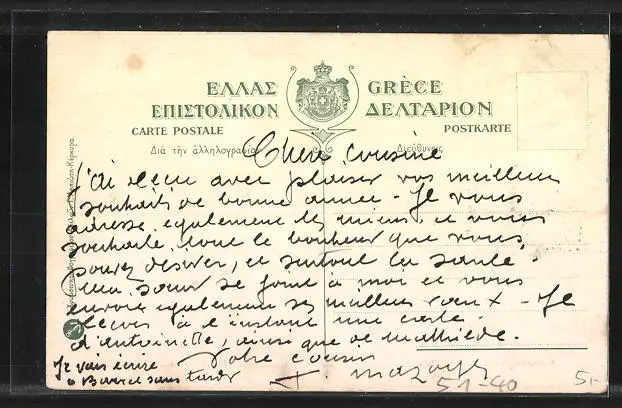 ΕΛΛΑΣ GRÈCE
ΕΠΙΣΤΟΛΙΚΟΝ ΔΕΛΤΑΡΙΟΝ
CARTE POSTALE POSTKARTE
Διὰ τὴν ἀλληλογραφίαν Διεύθυνσις
Chère cousine
J'ai reçu avec plaisir vos meilleurs
souhaits de bonne année - Je vous
adresse egalement les miens, et vous
souhaite tout le bonheur que vous
pouvez desirer, et surtout la santé.
Ma sœur se joint à moi et vous
envoie egalement ses meilleurs vœux - Je
reçois à l'instant une carte
d'antoinette, ainsi que de mathilde.
Votre cousin
Je vais écrire
sans tarder
51-40
5,-